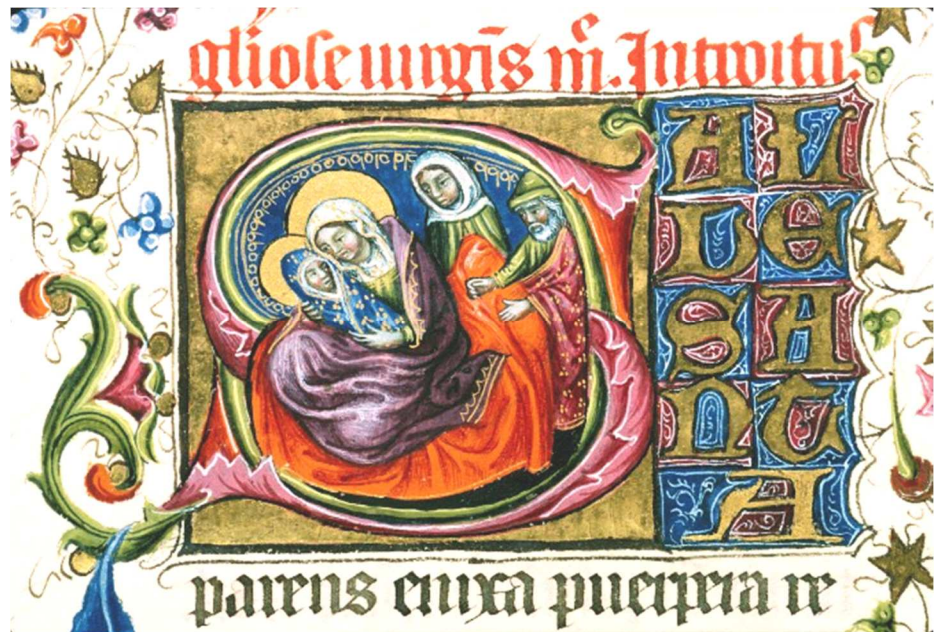 gliose uirgīs m̄. Introitus
S AL
UE
SA
NT
A
parens enixa puerpera re